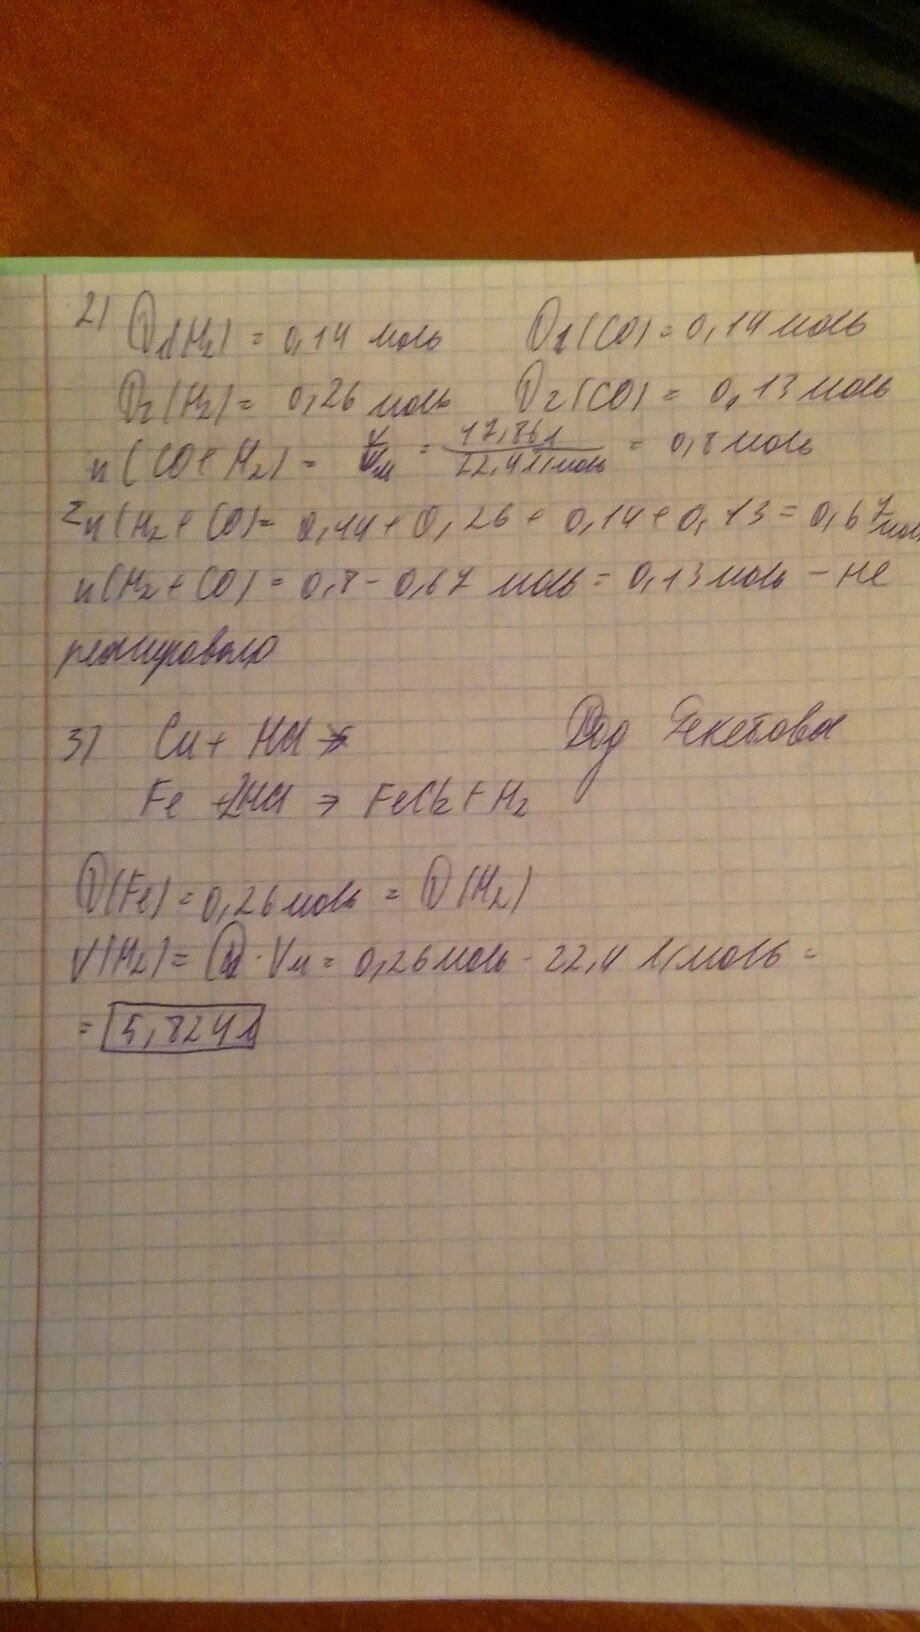 2) ν₁(H₂) = 0,14 моль ν₁(CO) = 0,14 моль
ν₂(H₂) = 0,26 моль ν₂(CO) = 0,13 моль
n(CO+H₂) = V/Vм = 17,86л/22,4л/моль = 0,8 моль
Σn(H₂+CO) = 0,14 + 0,26 + 0,14 + 0,13 = 0,67 моль
n(H₂+CO) = 0,8 - 0,67 моль = 0,13 моль - не
реагировало
3) Cu + HCl ↛ Ряд Бекетова
Fe + 2HCl → FeCl₂ + H₂
ν(Fe) = 0,26 моль = ν(H₂)
V(H₂) = ν · Vм = 0,26 моль · 22,4 л/моль =
= 5,824 л